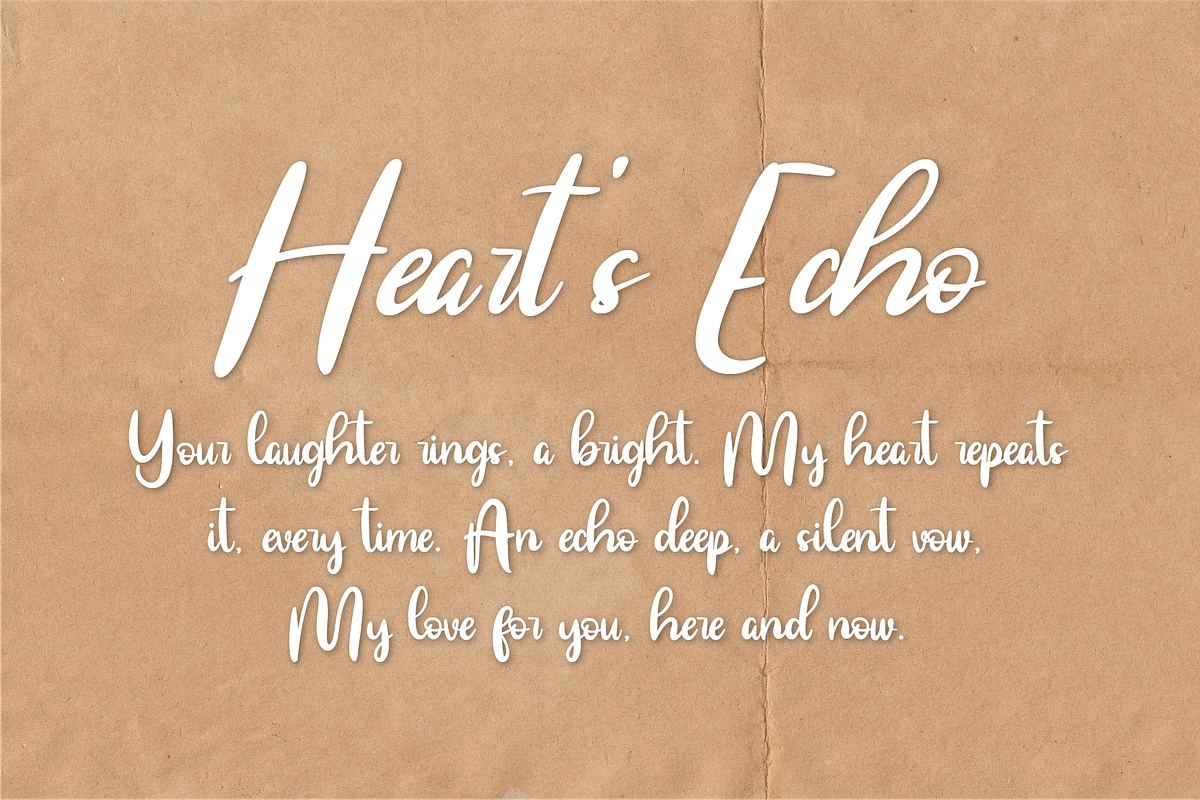 Heart's Echo
Your laughter rings, a bright. My heart repeats
it, every time. An echo deep, a silent vow,
My love for you, here and now.